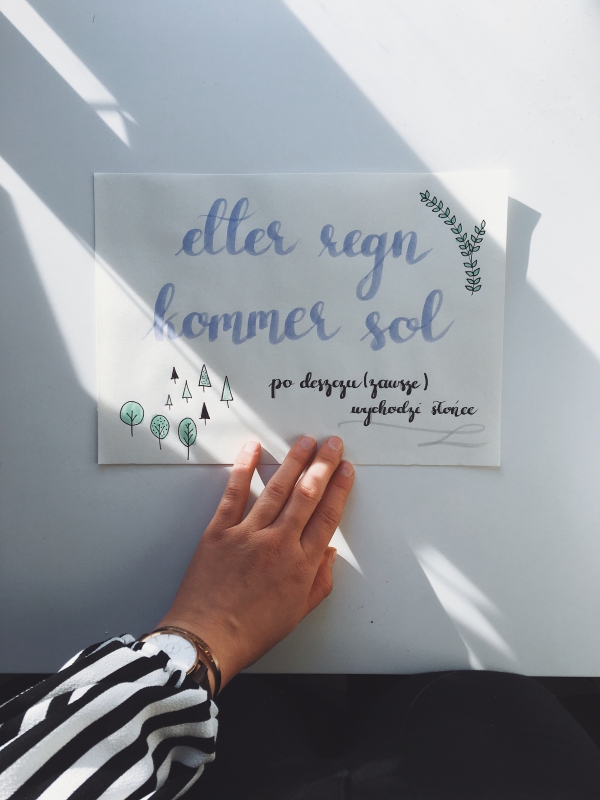 etter regn
kommer sol
po deszczu (zawsze)
wychodzi słońce